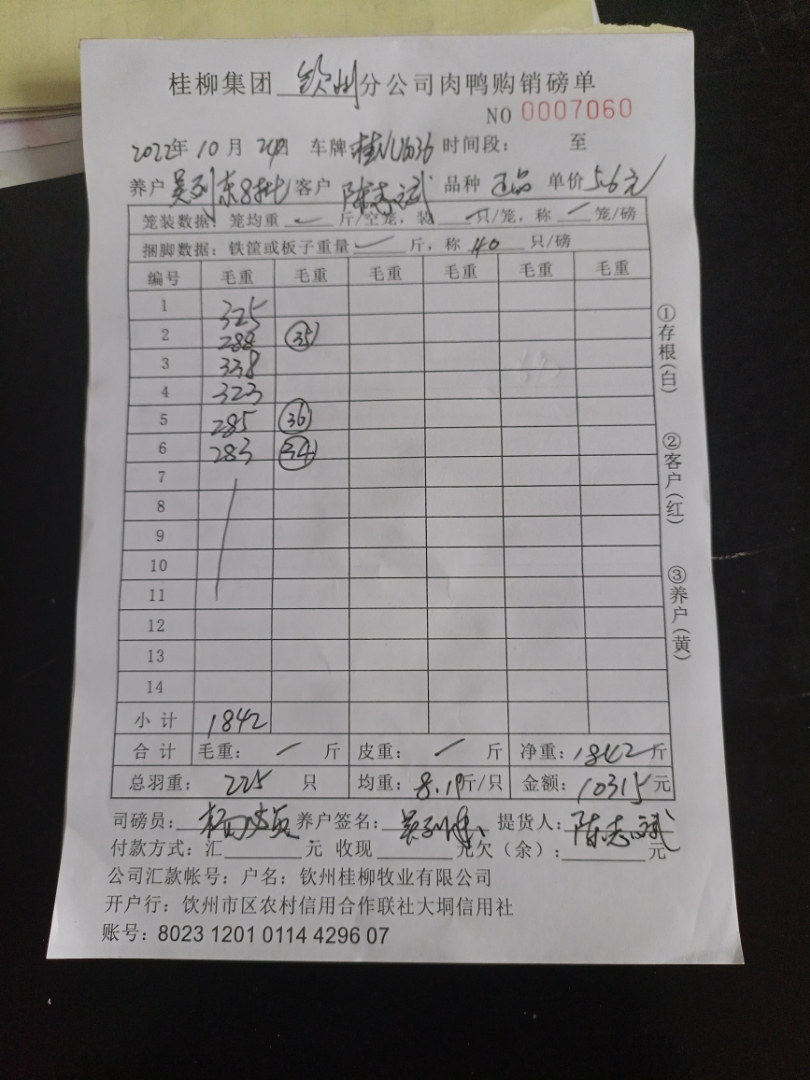 桂柳集团 钦州 分公司肉鸭购销磅单
NO 0007060
2022年 10月 24日 车牌 时间段： 至
养户 吴列东8批 客户 陈志斌 品种 正品 单价 5.6元
笼装数据：笼均重 斤/空笼，装 只/笼，称 笼/磅
捆脚数据：铁筐或板子重量 斤，称 40 只/磅
编号 毛重 毛重 毛重 毛重 毛重 毛重
1 325
2 288 35
3 338
4 323
5 285 36
6 283 34
7
8
9
10
11
12
13
14
小计 1842
合计 毛重： 斤 皮重： 斤 净重：1842斤
总羽重： 225 只 均重：8.19斤/只 金额：10315元
司磅员： 养户签名： 提货人：陈志斌
付款方式：汇 元 收现 元欠（余）： 元
公司汇款帐号：户名：钦州桂柳牧业有限公司
开户行：钦州市区农村信用合作联社大垌信用社
账号：8023 1201 0114 4296 07
①存根(白)
②客户(红)
③养户(黄)